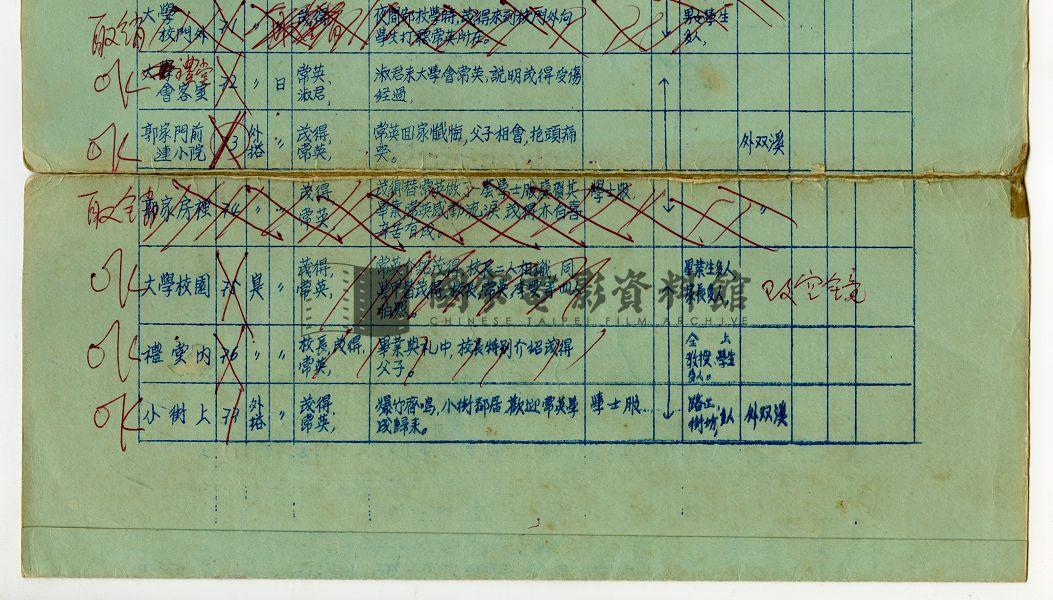 取消
大學
校門外
71
〃
夜間部放學時，茂得來到校門外向
學生打聽常英所在。
男女學生
多人，
OK
大學禮堂
會客室
72
〃
日
常英，
淑君，
淑君來大學會常英，說明茂得受傷
經過，
OK
郭家門前
連小院
73
外搭
〃
茂得，
常英，
常英回家懺悔，父子相會，抱頭痛
哭。
外双溪
取
郭家房裡
74
〃
〃
茂得，
常英，
學士服，
畢業，常英感動流淚，茂得亦有喜
〃
OK
大學校園
75
臭
〃
茂得，
常英，
畢業生多人
家長多人
改空鏡
國家電影資料館
CHINESE TAIPEI FILM ARCHIVE
OK
禮堂內
76
〃
〃
校長，茂得，
常英，
畢業典礼中，校長特別介紹茂得
父子。
仝上
教授，學生
多人。
OK
小街上
77
外搭
〃
茂得，
常英，
爆竹齊鳴，小街鄰居，歡迎常英學
成歸來。
學士服
路上
街坊，多人
外双溪